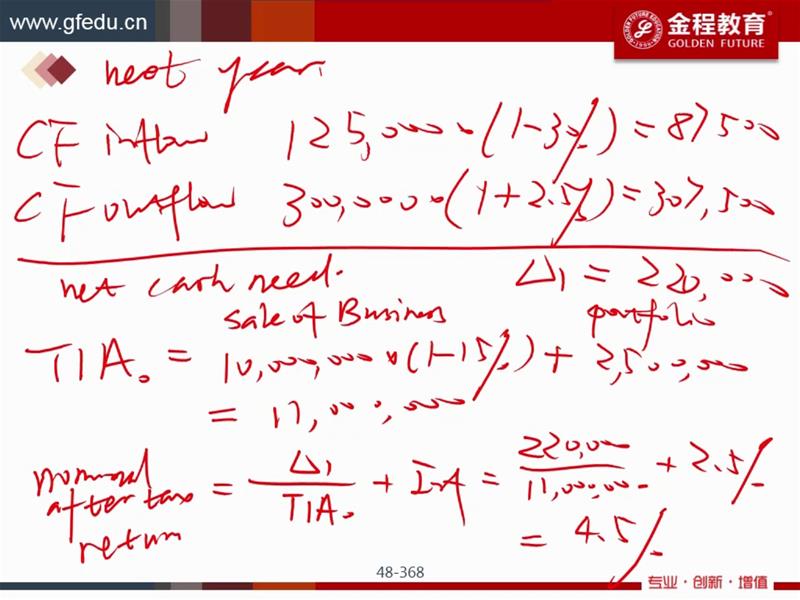 www.gfedu.cn
金程教育
GOLDEN FUTURE
next year
CF inflow 125,000·(1-30%) = 87500
CF outflow 300,000·(1+2.5%) = 307,500
net cash need. Δ₁ = 220,000
sale of Business portfolio
TIA₀ = 10,000,000×(1-15%) + 2,500,000
= 11,000,000
nominal after tax return = Δ₁/TIA₀ + Inf = 220,000/11,000,000 + 2.5%
= 4.5%
48-368
专业·创新·增值